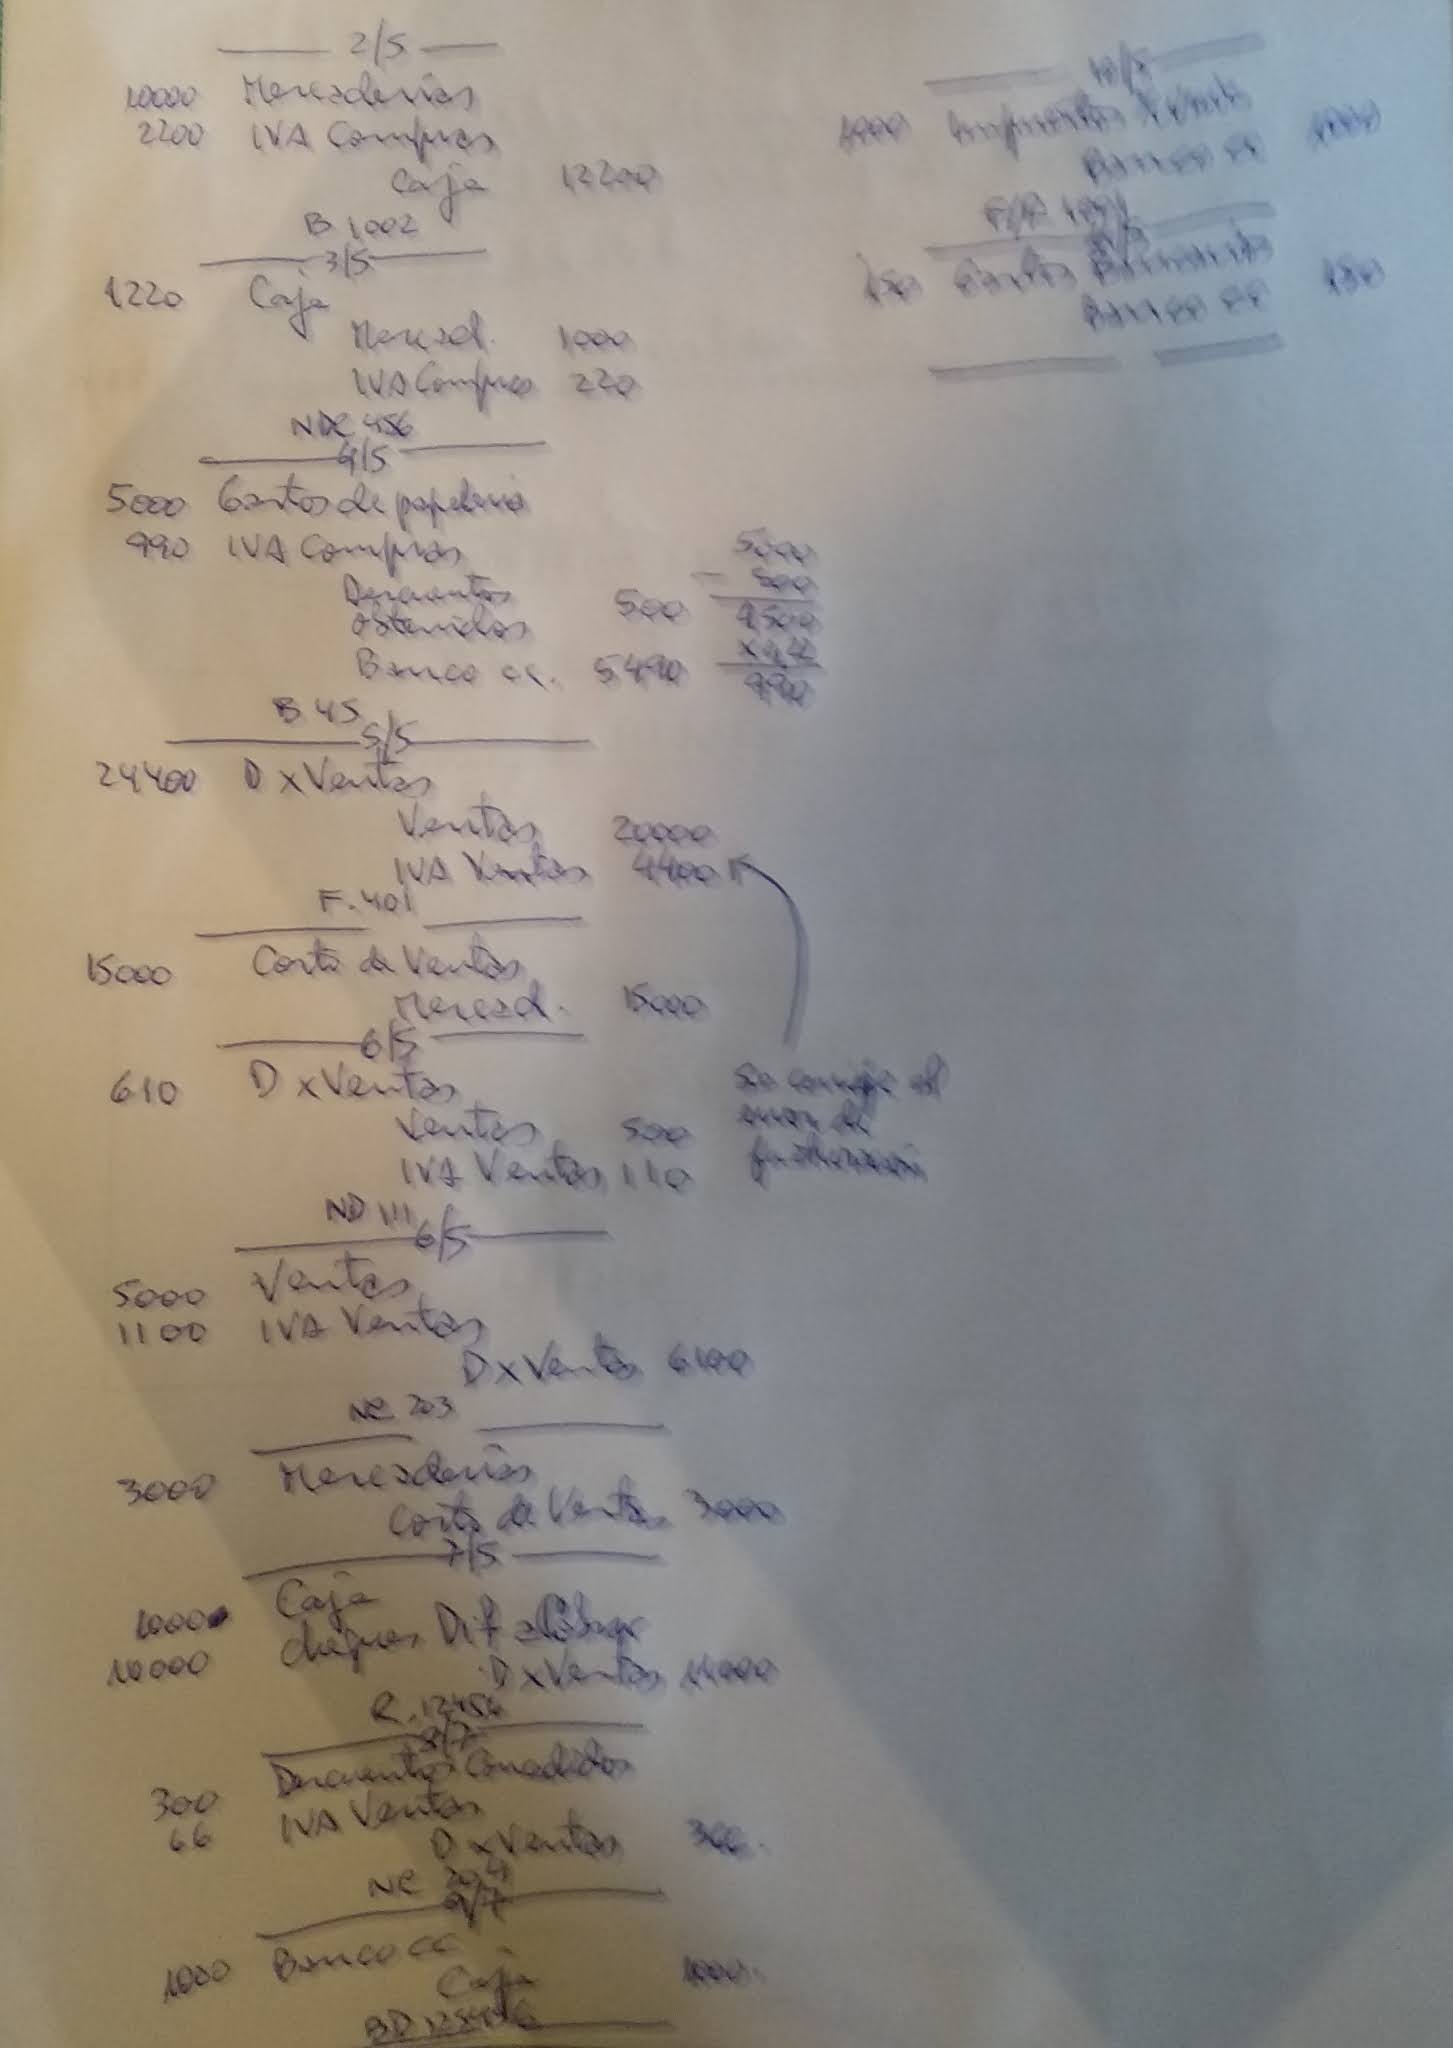 2/5
10000 Mercaderias
2200 IVA Compras
Caja 12200
B 1002
3/5
1220 Caja
Mercad. 1000
IVA Compras 220
NDC 456
4/5
5000 Gastos de papeleria
990 IVA Compras
Descuentos
obtenidos 500
Banco cc. 5490
5000
- 500
4500
990
B 45
5/5
24400 D x Ventas
Ventas 20000
IVA Ventas 4400
F. 401
15000 Costo de Ventas
Mercad. 15000
6/5
610 D x Ventas
Ventas 500
IVA Ventas 110
Se corrige el
error de
facturación
ND 111
6/5
5000 Ventas
1100 IVA Ventas
D x Ventas 6100
NC 203
3000 Mercaderias
Costo de Ventas 3000
7/5
Caja
10000 cheques Dif a Cobrar
D x Ventas
R.
300 Descuentos Concedidos
66 IVA Ventas
D x Ventas 366.
NC 204
1000 Banco cc
Caja 1000.
BD
Banco cc
Gastos Bancarios
Banco cc